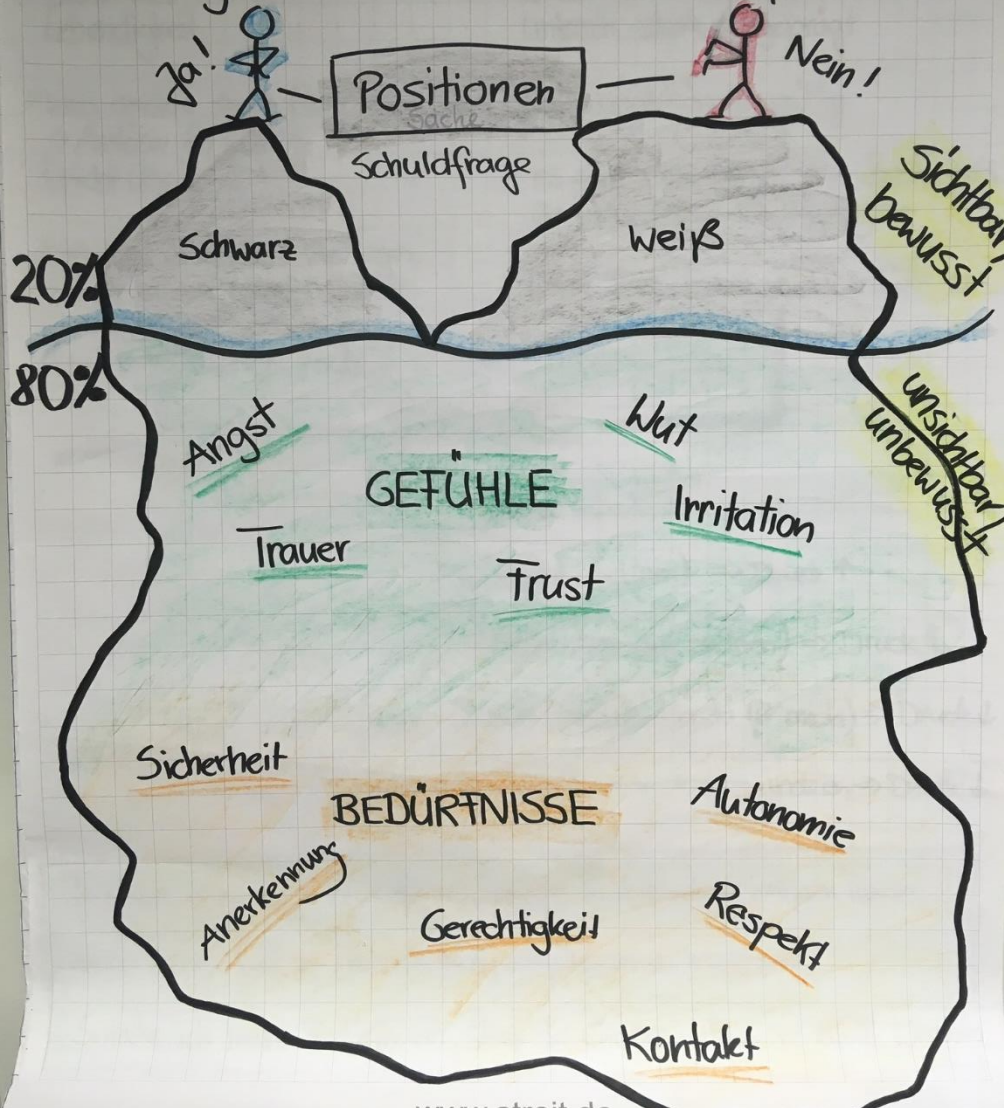 Ja!
Nein!
Positionen
Sache
Schuldfrage
Sichtbar/
bewusst
Schwarz
weiß
20%
80%
unsichtbar/
unbewusst
Angst
Wut
GEFÜHLE
Irritation
Trauer
Frust
Sicherheit
BEDÜRFNISSE
Autonomie
Anerkennung
Gerechtigkeit
Respekt
Kontakt